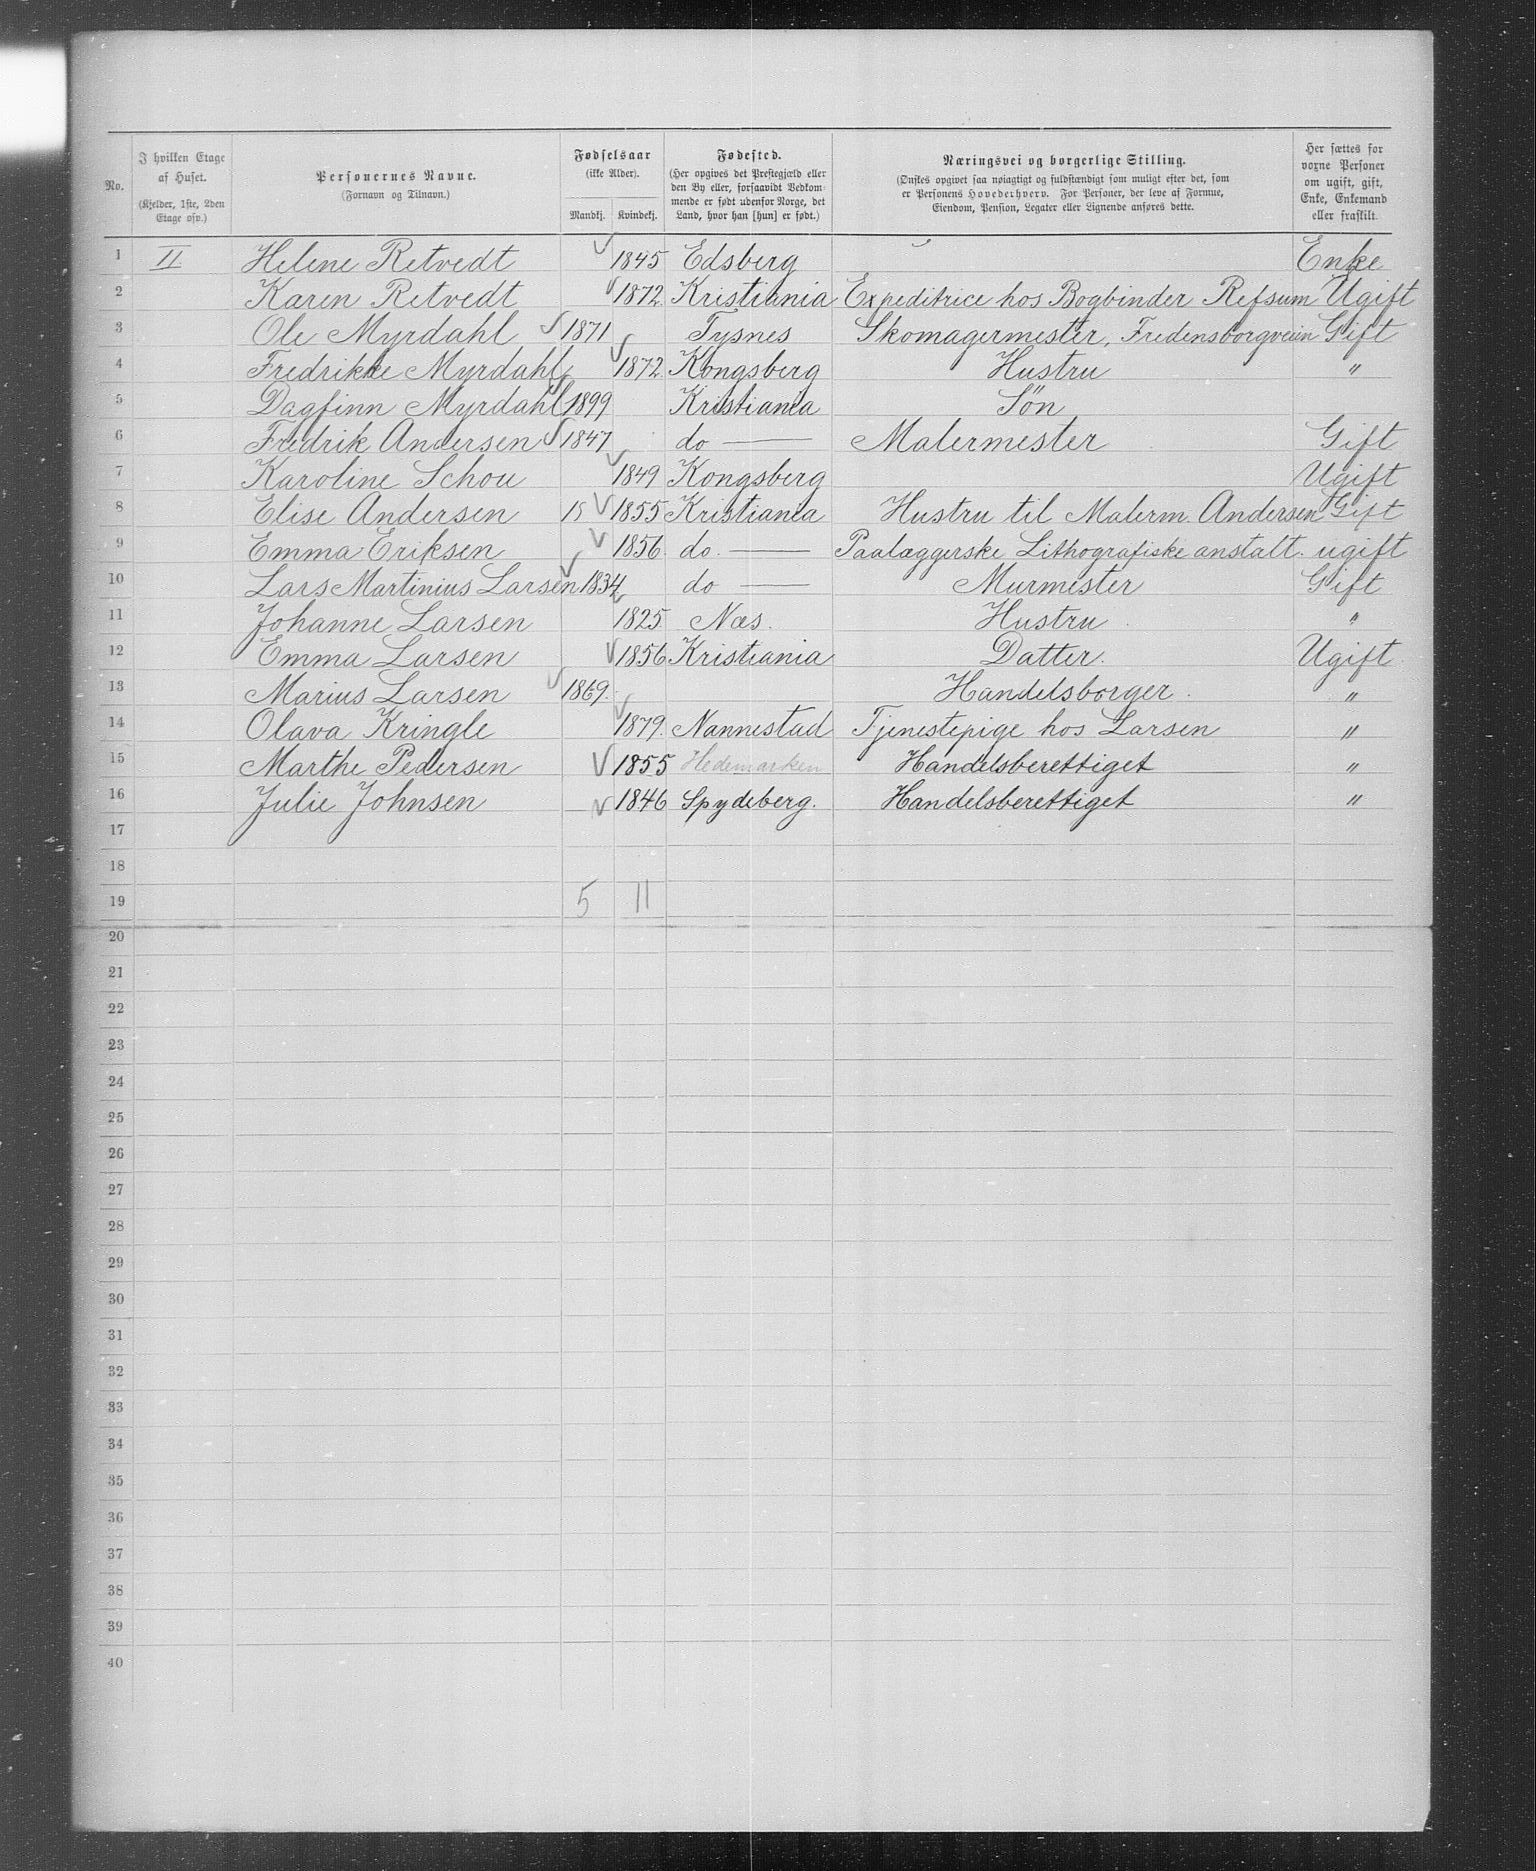 No.
I hvilken Etage af Huset.
(Kjelder, 1ste, 2den Etage osv.)
Personernes Navne.
(Fornavn og Tilnavn.)
Fødselsaar
(ikke Alder).
Mandkj. Kvindekj.
Fødested.
(Her opgives det Prestegjæld eller den By eller, forsaavidt Vedkommende er født udenfor Norge, det Land, hvor han [hun] er født.)
Næringsvei og borgerlige Stilling.
(Ønskes opgivet saa nøiagtigt og fuldstændigt som muligt efter det, som er Personens Hovederhverv. For Personer, der leve af Formue, Eiendom, Pension, Legater eller Lignende anføres dette.
Her sættes for voxne Personer om ugift, gift, Enke, Enkemand eller fraskilt.
1 II Helene Retvedt 1845 Edsberg Enke
2 Karen Retvedt 1872. Kristiania Expeditrice hos Bogbinder Refsum Ugift
3 Ole Myrdahl 1871 Tysnes Skomagermester, Fredensborgveien Gift
4 Fredrikke Myrdahl 1872. Kongsberg Hustru "
5 Dagfinn Myrdahl 1899 Kristiania Søn
6 Fredrik Andersen 1847 do — Malermester Gift
7 Karoline Schou 1849 Kongsberg Ugift
8 Elise Andersen 18 1855 Kristiania Hustru til Malerm. Andersen Gift
9 Emma Eriksen 1856. do. — Paalæggerske Lithografiske anstalt. ugift
10 Lars Martinius Larsen 1834 do — Murmester Gift
11 Johanne Larsen 1825 Næs. Hustru "
12 Emma Larsen 1856 Kristiania Datter. Ugift.
13 Marius Larsen 1869. Handelsborger. "
14 Olava Kringle 1879. Nannestad Tjenestepige hos Larsen "
15 Marthe Pedersen 1855 Hedemarken Handelsberettiget "
16 Julie Johnsen 1846 Spydeberg. Handelsberettiget "
17
18
19 5 11
20
21
22
23
24
25
26
27
28
29
30
31
32
33
34
35
36
37
38
39
40